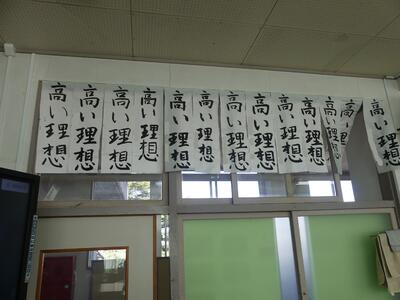 高い理想
高い理想
高い理想
高い理想
高い理想
高い理想
高い理想
高い理想
高い理想
高い理想
高い理想
高い理
高い理想